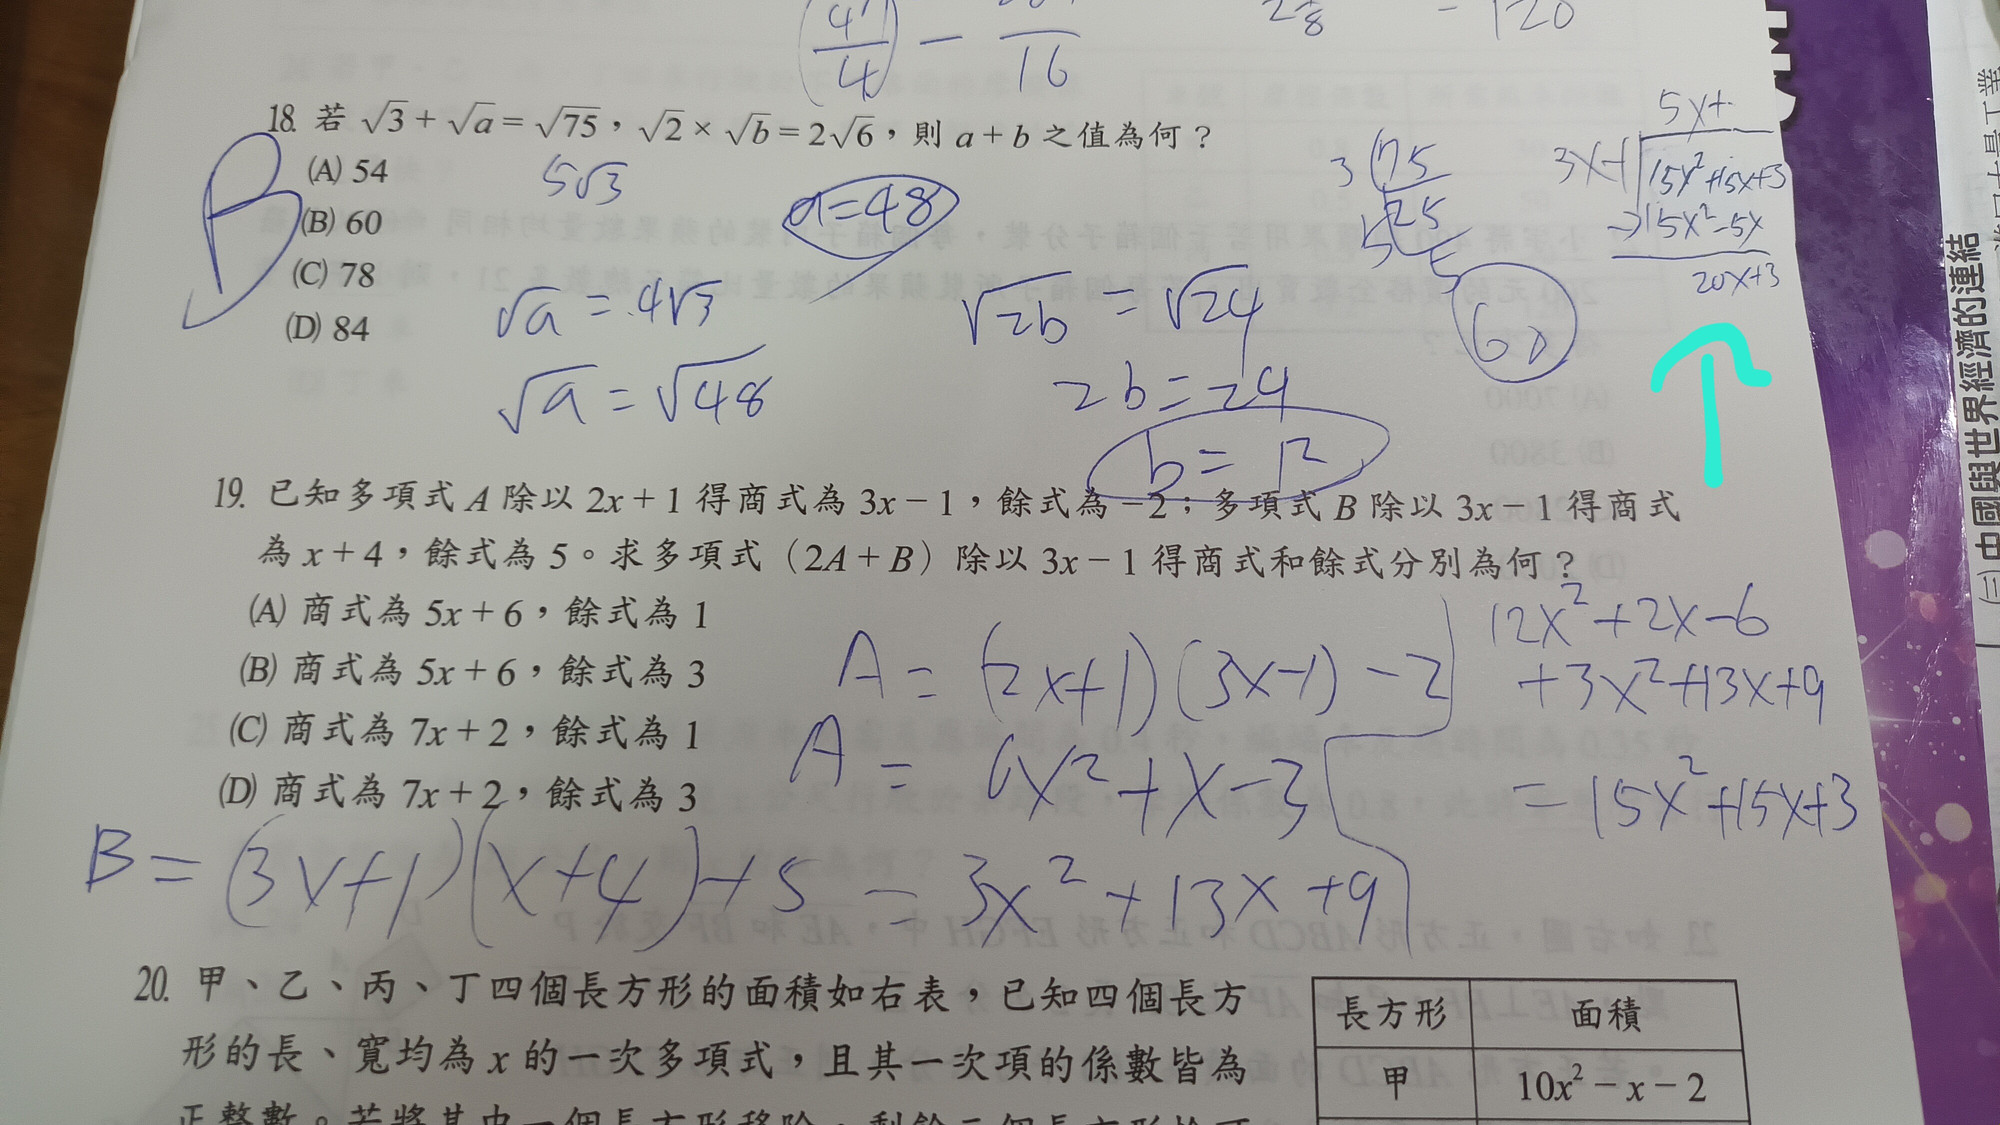 18. 若 √3 + √a = √75，√2 × √b = 2√6，則 a + b 之值為何？
(A) 54
(B) 60
(C) 78
(D) 84
B
5√3
a=48
√a = 4√3
√a = √48
√2b = √24
2b = 24
b = 12
3 75
5 25
5
60
5x+
3x-1 15x²+15x+3
-) 15x²-5x
20x+3
19. 已知多項式 A 除以 2x + 1 得商式為 3x − 1，餘式為 −2；多項式 B 除以 3x − 1 得商式
為 x + 4，餘式為 5。求多項式（2A + B）除以 3x − 1 得商式和餘式分別為何？
(A) 商式為 5x + 6，餘式為 1
(B) 商式為 5x + 6，餘式為 3
(C) 商式為 7x + 2，餘式為 1
(D) 商式為 7x + 2，餘式為 3
A = (2x+1)(3x-1)-2
A = 6x²+x-3
B = (3x+1)(x+4)+5 = 3x²+13x+9
12x²+2x-6
+3x²+13x+9
=15x²+15x+3
20. 甲、乙、丙、丁四個長方形的面積如右表，已知四個長方
形的長、寬均為 x 的一次多項式，且其一次項的係數皆為
正整數。若將其中一個長方形移除，剩餘三個長方形恰可
長方形 面積
甲 10x² − x − 2
(三) 中國與世界經濟的連結